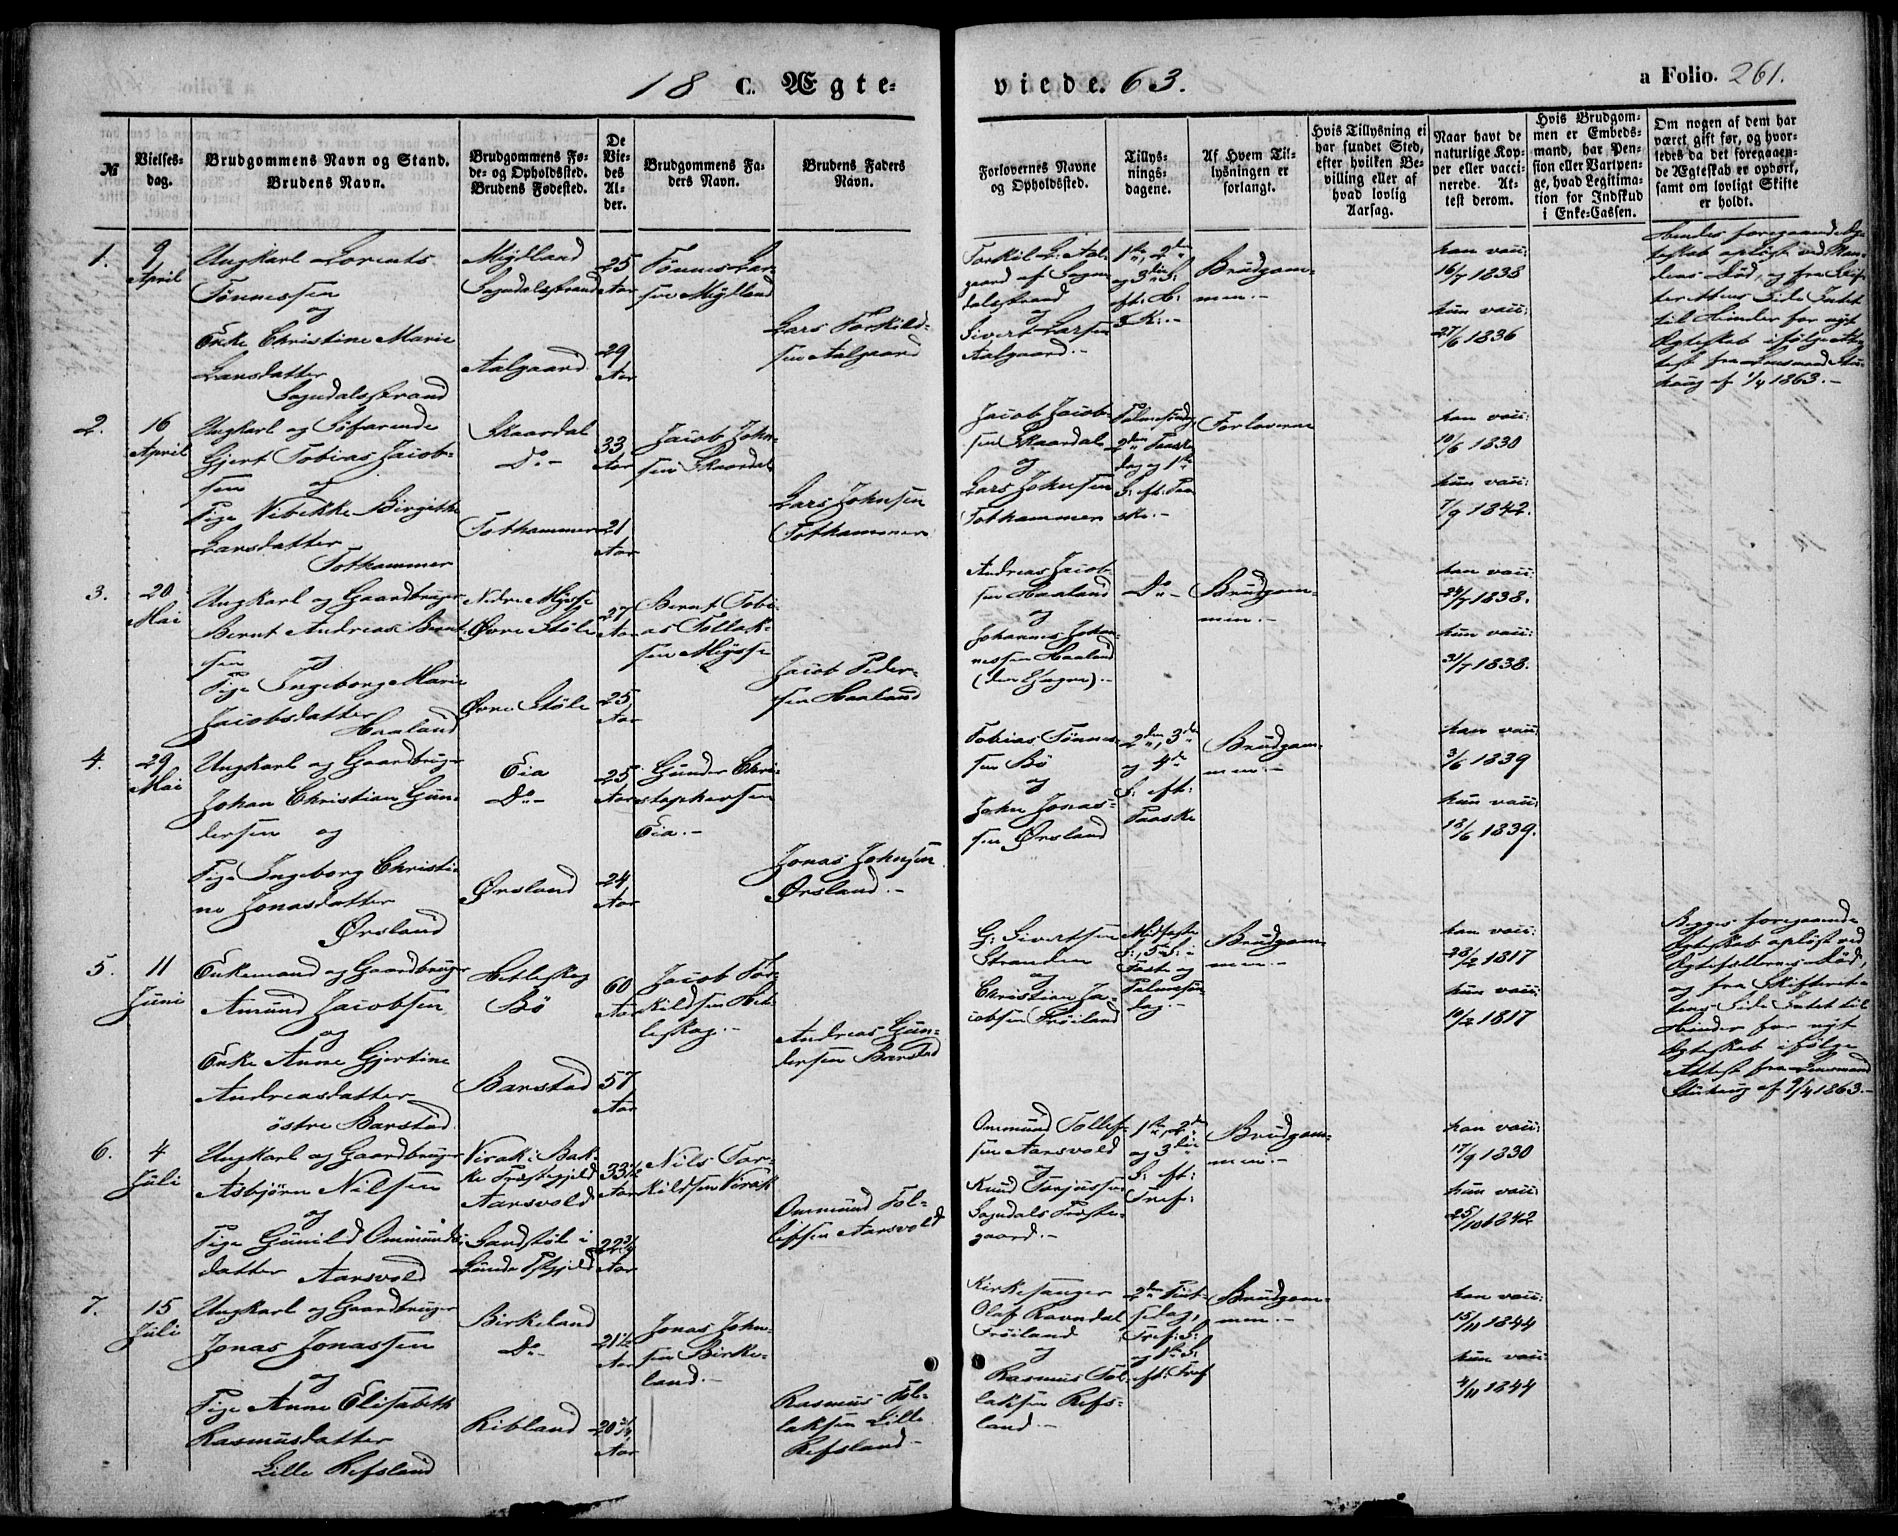 18 C. Ægte-
viede. 63.
a Folio. 261.
№
Vielses-
dag.
Brudgommens Navn og Stand.
Brudens Navn.
Brudgommens Fø-
de- og Opholdssted.
Brudens Fødested.
De
Vie-
des
Al-
der.
Brudgommens Fa-
ders Navn.
Brudens Faders
Navn.
Forlovernes Navne
og Opholdssted.
Tillys-
nings-
dagene.
Af Hvem Til-
lysningen er
forlangt.
Hvis Tillysning ei
har fundet Sted,
efter hvilken Be-
villing eller af
hvad lovlig
Aarsag.
Naar havt de
naturlige Kop-
per eller vacci-
nerede. At-
test derom.
Hvis Brudgom-
men er Embeds-
mand, har Pen-
sion eller Vartpen-
ge, hvad Legitima-
tion for Indskud
i Enke-Cassen.
Om nogen af dem har
været gift før, og hvor-
ledes da det foregaaen-
de Ægteskab er ophørt,
samt om lovligt Skifte
er holdt.
1.
9
April
Ungkarl Lorents
Tønnessen
og
Enke Christine Marie
Larsdatter
Sogndalsstrand
Mydland
Sogndalsstrand
Aalgaard
25
Aar
29
Aar
Tønnes Lar-
sen Mydland
Lars Torkild-
sen Aalgaard
Torkil L. Aal-
gaard af Sogn-
dalsstrand
og
Sivert Larsen
Aalgaard.-
1ste, 2den
og 3die S:
eft: H:
3 K:.-
Brudgom-
men.-
han vacc:
16/7 1838
hun vacc:
27/6 1836
Hendes foregaaende Æg-
teskab opløst ved Man-
dens Død, og fra Skif-
terettens Side Intet
til Hinder for nyt
Ægteskab ifølge At-
test fra Lensmand Stu-
haug af 1/4 1863.-
2.
16
April
Ungkarl og Søfarende
Gjert Tobias Jacob-
sen og
Pige Vibekke Birgitte
Larsdatter
Tothammer
Skaardal
Do-
Tothammer
33
Aar
21
Aar
Jacob John-
sen Skaardal
Lars Johnsen
Tothammer
Jacob Jacob-
sen Skaardal
og
Lars Johnsen
Tothammer
Palmesønd.,
2den Paaske-
dag og 1ste
S: eft: Paa-
ske.-
Forloverne
han vacc:
10/6 1830
hun vacc:
7/9 1842.
3.
20
Mai
Ungkarl og Gaardbruger
Bernt Andreas Bernt-
sen og
Pige Ingeborg Marie
Jacobsdatter
Haaland
Nedre Mysse
Øvre Støle
Øvre Støle
27
Aar
25
Aar
Bernt Tobi-
as Tollak-
sen Mysse
Jacob Peder-
sen Haaland
Andreas Jacob-
sen Haaland
og
Johannes Johan-
nessen Haaland
(den Yngre).-
Do-
Brudgom-
men.-
han vacc:
24/7 1838.
hun vacc:
31/7 1838.
4.
29
Mai
Ungkarl og Gaardbruger
Johan Christian Gun-
dersen og
Pige Ingeborg Christi-
ne Jonasdatter
Ørsland
Eia
Do-
Ørsland
25
Aar
24
Aar
Gunder Chri-
stophersen
Eia.-
Jonas Johnsen
Ørsland.-
Tobias Tønnes-
sen Bø
og
John Jonas-
sen Ørsland
2den, 3die
og 4de
S: eft:
Paaske
Brudgom-
men.-
han vacc:
3/6 1839
hun vacc:
18/6 1839.
5.
11
Juni
Enkemand og Gaardbruger
Amund Jacobsen
og
Enke Anne Gjertine
Andreasdatter
østre Barstad
Hetleskog
Bø
Barstad
60
Aar
57
Aar
Jacob Tor-
kildsen Het-
leskog.-
Andreas Gun-
dersen Barstad
G: Sivertsen
Stranden
og
Christian Ja-
cobsen Frøiland
Midfaste
S:, 5te S: i
Faste og
Palmesøn-
dag.-
Brudgom-
men.-
han vacc:
28/2 1817
hun vacc:
10/2 1817
Begges foregaaende
Ægteskab opløst ved
Ægtefællernes Død,
og fra Skifteret-
tens Side Intet til
Hinder for nyt
Ægteskab ifølge
Attest fra Lensmand
Stuhaug af 9/4 1863.-
6.
4
Juli
Ungkarl og Gaardbruger
Asbjørn Nilsen
og
Pige Gunild Ommunds-
datter Aarsvold
Virak i Bak-
ke Præstegjeld
Aarsvold
Sandstøl i
Lunde Pstgjeld
33 1/2
Aar
22 3/4
Aar
Nils Tor-
kildsen Virak
Ommund Tol-
lefsen Aarsvold
Ommund Tollef-
sen Aarsvold
og
Knud Torjussen
Sogndals Præste-
gaard.-
1ste, 2den
og 3die
S: eft:
Tref:
Brudgom-
men.-
han vacc:
17/9 1830
hun vacc:
25/10 1842
7.
15
Juli
Ungkarl og Gaardbruger
Jonas Jonassen
og
Pige Anne Elisabeth
Rasmusdatter
Lille Refsland
Birkeland
Do-
Ribland
21 1/2
Aar
20 3/4
Aar
Jonas John-
sen Birke-
land.-
Rasmus Tol-
laksen Lille
Refsland-
Kirkesanger
Olaf Ravndal
Frøiland
og
Rasmus Tol-
laksen Refs-
land.-
2den Pint-
sedag,
Tref: S:
og 1ste S:
eft: Tref
Brudgom-
men.-
han vacc:
15/11 1844
hun vacc:
4/11 1844